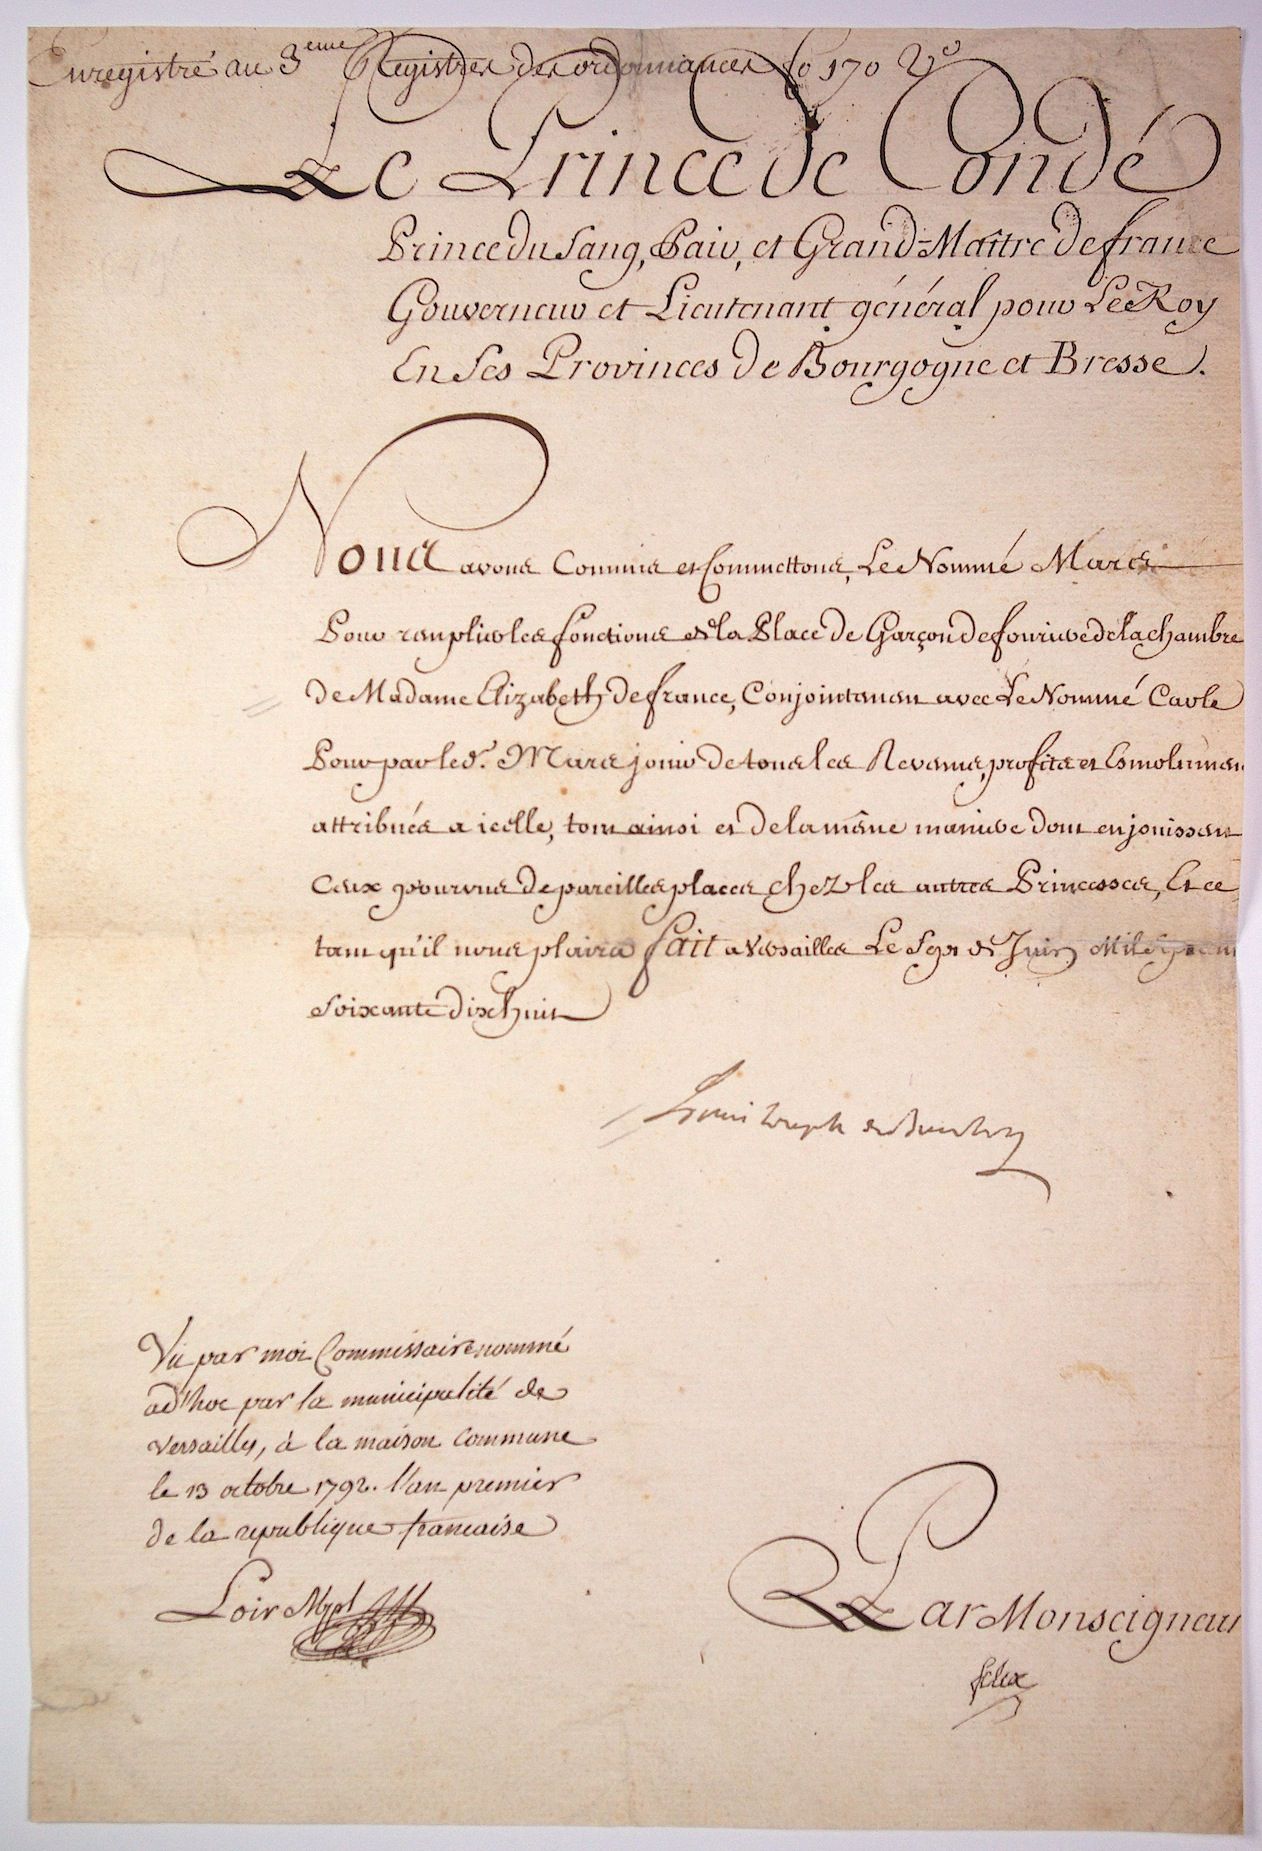 Enregistré au 3eme Registre des ordonnances fo 170 Vo
Le Prince de Condé
Prince du Sang, Pair, et Grand-Maître de france
Gouverneur et Lieutenant général pour Le Roy
En Ses Provinces de Bourgogne et Bresse.
Nous avons Commis et Commettons, Le Nommé Mares
Pour remplir les fonctions et la Place de Garçon de fouriere de la chambre
de Madame Elizabeth de france, Conjointement avec Le Nommé Carle
Pour par led. Mares jouir de tous les Revenus, profits et Emolumen
attribués a icelle, tout ainsi et de la même maniere dont en jouissent
Ceux pourvus de pareilles places chez les autres Princesses, Et ce
tant qu'il nous plaira fait a Versailles Le Sept de Juin Mil Sept cent
Soixante dix huit
Louis Joseph de Bourbon
Vu par moi Commissaire nommé
ad'hoc par la municipalité de
Versailles, à la maison commune
le 13 octobre 1792. l'an premier
de la republique francaise
Loir Mpl
Par Monseigneur
felix